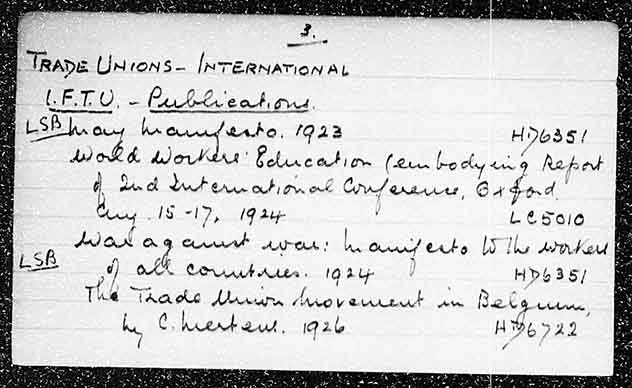 3.
TRADE UNIONS - INTERNATIONAL
I.F.T.U. - Publications.
LSB May Manifesto. 1923 HD6351
World Workers' Education (embodying Report
of 2nd International Conference, Oxford.
Aug. 15-17, 1924 LC5010
War against war: Manifesto to the workers
LSB of all countries. 1924 HD6351
The Trade Union Movement in Belgium,
by C. Mertens. 1926 HD6722